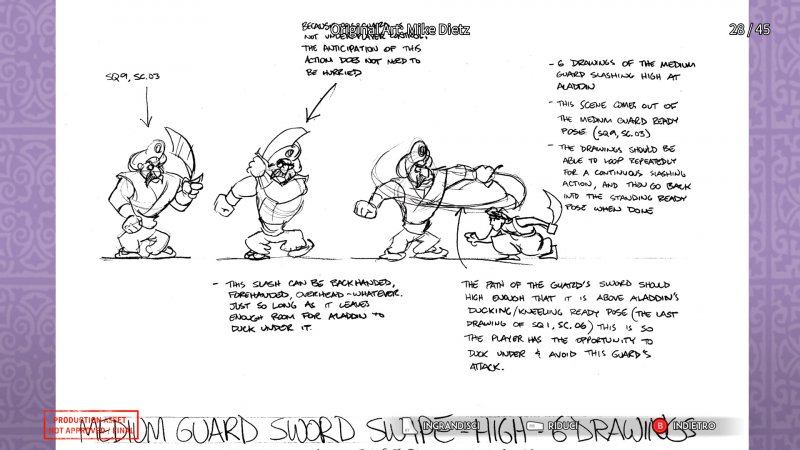 Original Art: Mike Dietz
28 / 45
NOT UNDER PLAYER CONTROL.
THE ANTICIPATION OF THIS
ACTION DOES NOT NEED TO
BE HURRIED
SQ9, SC.03
- 6 DRAWINGS OF THE MEDIUM
GUARD SLASHING HIGH AT
ALADDIN
- THIS SCENE COMES OUT OF
THE MEDIUM GUARD READY
POSE (SQ9, SC.03)
- THE DRAWINGS SHOULD BE
ABLE TO LOOP REPEATEDLY
FOR A CONTINUOUS SLASHING
ACTION, AND THEN GO BACK
INTO THE STANDING READY
POSE WHEN DONE
- THIS SLASH CAN BE BACKHANDED,
FOREHANDED, OVERHEAD - WHATEVER.
JUST SO LONG AS IT LEAVES
ENOUGH ROOM FOR ALADDIN TO
DUCK UNDER IT.
THE PATH OF THE GUARD'S SWORD SHOULD
HIGH ENOUGH THAT IT IS ABOVE ALADDIN'S
DUCKING/KNEELING READY POSE (THE LAST
DRAWING OF SQ1, SC.06) THIS IS SO
THE PLAYER HAS THE OPPORTUNITY TO
DUCK UNDER & AVOID THIS GUARD'S
ATTACK.
PRODUCTION ASSET
NOT APPROVED / FINAL
MEDIUM GUARD SWORD SWIPE - HIGH - 6 DRAWINGS
INGRANDISCI
RIDUCI
B INDIETRO